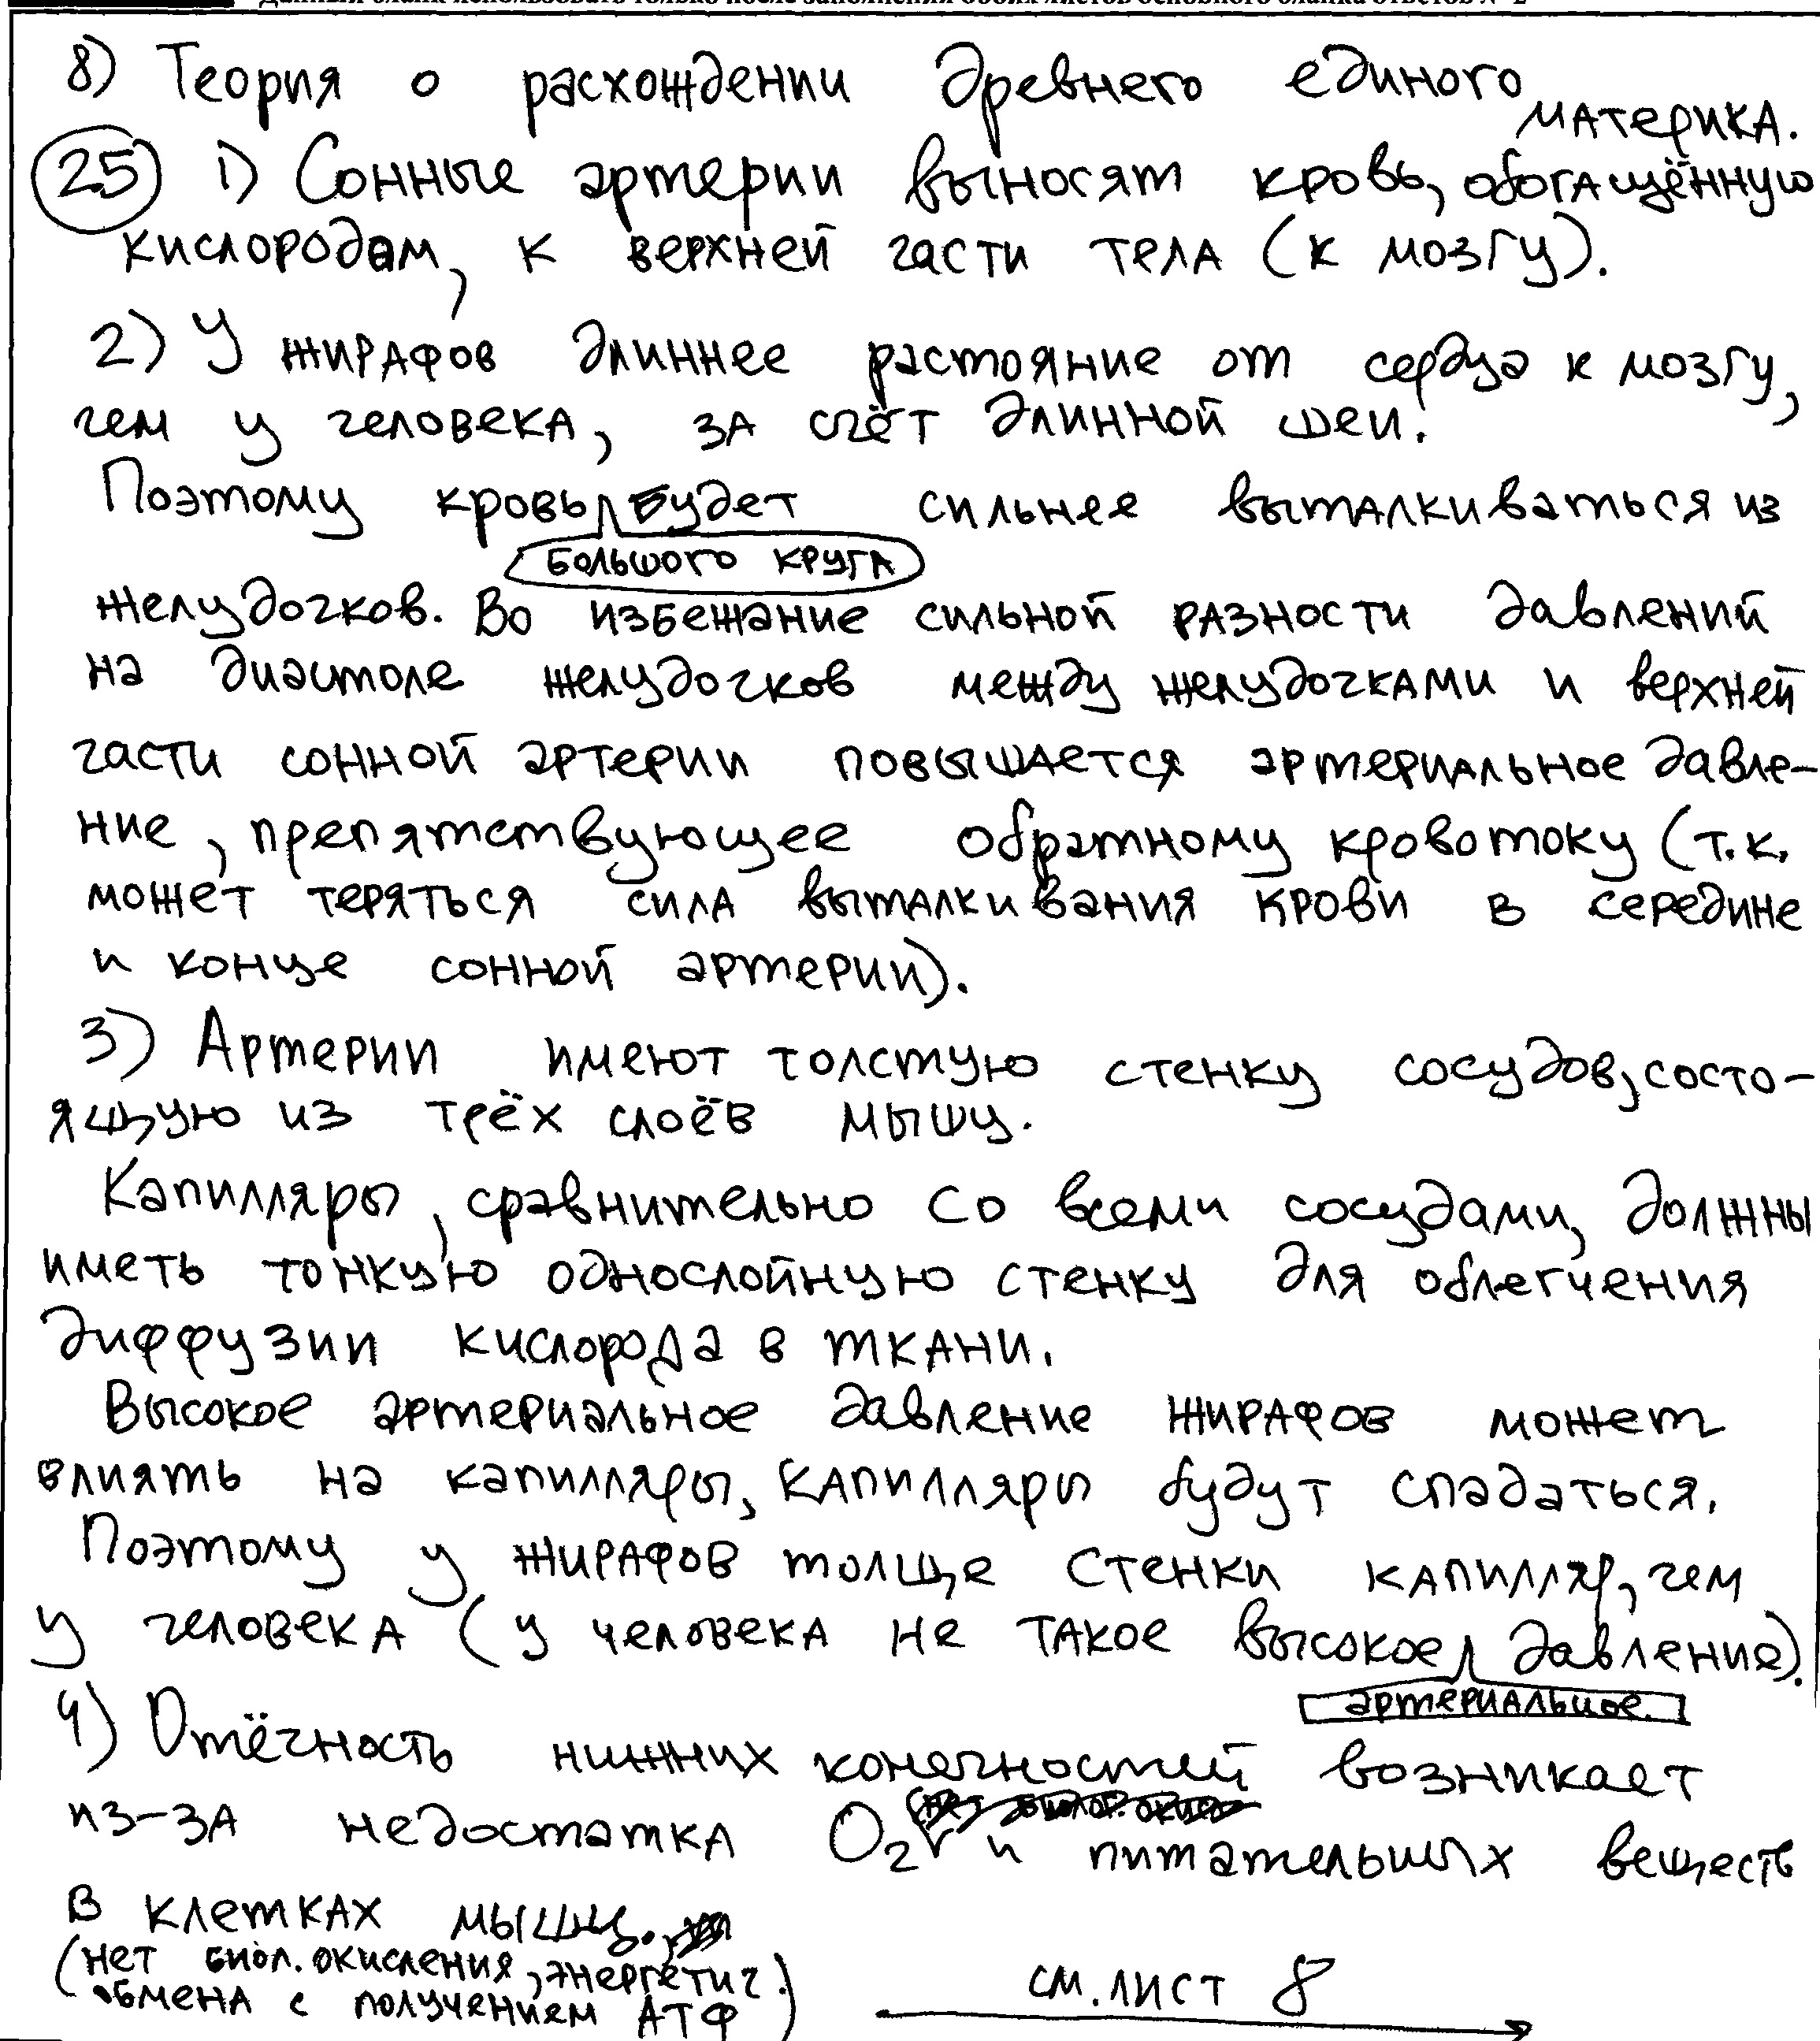 Данный бланк использовать только после заполнения обоих листов основного бланка ответов № 2
8) Теория о расхождении древнего единого материка.
25 1) Сонные артерии выносят кровь, обогащённую
кислородом, к верхней части тела (к мозгу).
2) У жирафов длиннее растояние от сердца к мозгу,
чем у человека, за счёт длинной шеи.
Поэтому кровь будет сильнее выталкиваться из
большого круга
желудочков. Во избежание сильной разности давлений
на диастоле желудочков между желудочками и верхней
части сонной артерии повышается артериальное давле-
ние, препятствующее обратному кровотоку (т.к.
может теряться сила выталкивания крови в середине
и конце сонной артерии).
3) Артерии имеют толстую стенку сосудов, состо-
ящую из трёх слоёв мышц.
Капилляры, сравнительно со всеми сосудами, должны
иметь тонкую однослойную стенку для облегчения
диффузии кислорода в ткани.
Высокое артериальное давление жирафов может
влиять на капилляры, капилляры будут спадаться.
Поэтому у жирафов толще стенки капилляр, чем
у человека (у человека не такое высокое давление).
артериальное
4) Отёчность нижних конечностей возникает
из-за недостатка O₂ и питательных веществ
в клетках мышц.
(нет биол. окисления, энергетич.
обмена с получением АТФ)
см. лист 8